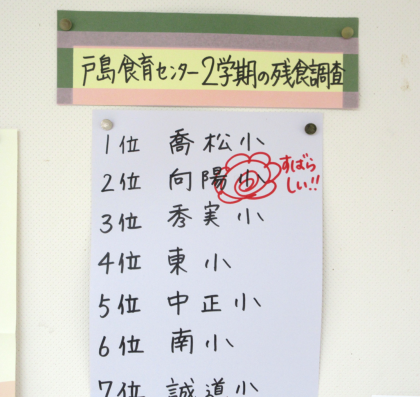 戸島食育センター2学期の残食調査
1位 喬松小
2位 向陽小
すばら
しい!!
3位 秀実小
4位 東小
5位 中正小
6位 南小
7位 誠道小